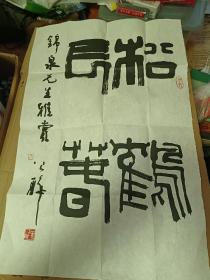 松鶴
長春
錦泉先生雅賞